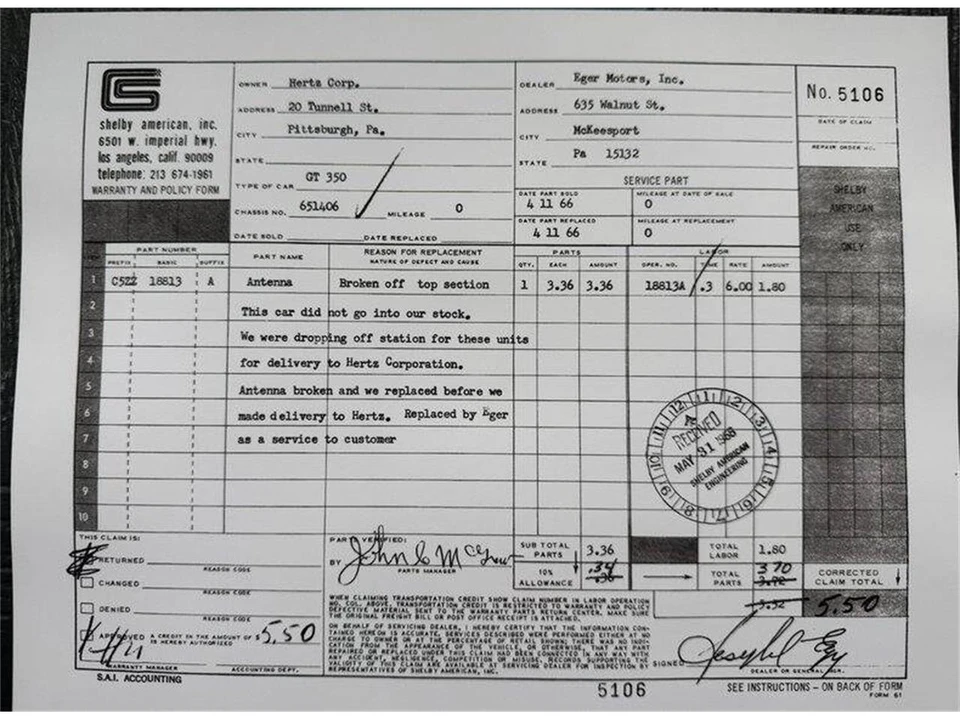 shelby american, inc.
6501 w. imperial hwy.
los angeles, calif. 90009
telephone: 213 674-1961
WARRANTY AND POLICY FORM
OWNER Hertz Corp.
ADDRESS 20 Tunnell St.
CITY Pittsburgh, Pa.
STATE
TYPE OF CAR GT 350
CHASSIS NO. 651406 MILEAGE 0
DATE SOLD DATE REPLACED
DEALER Eger Motors, Inc.
ADDRESS 635 Walnut St.
CITY McKeesport
STATE Pa 15132
SERVICE PART
DATE PART SOLD MILEAGE AT DATE OF SALE
4 11 66 0
DATE PART REPLACED MILEAGE AT REPLACEMENT
4 11 66 0
No. 5106
DATE OF CLAIM
REPAIR ORDER NO.
SHELBY
AMERICAN
USE
ONLY
PART NUMBER PART NAME REASON FOR REPLACEMENT PARTS LABOR
PREFIX BASIC SUFFIX NATURE OF DEFECT AND CAUSE QTY. EACH AMOUNT OPER. NO. TIME RATE AMOUNT
1 C5ZZ 18813 A Antenna Broken off top section 1 3.36 3.36 18813A .3 6.00 1.80
2 This car did not go into our stock.
3 We were dropping off station for these units
4 for delivery to Hertz Corporation.
5 Antenna broken and we replaced before we
6 made delivery to Hertz. Replaced by Eger
7 as a service to customer
8
9
10
12 11 12 3 4 5 6 7 8 9 10 11
RECEIVED
MAY 31 1966
SHELBY AMERICAN
ENGINEERING
THIS CLAIM IS:
RETURNED
REASON CODE
CHANGED
REASON CODE
DENIED
REASON CODE
APPROVED A CREDIT IN THE AMOUNT OF $5.50
IS HEREBY AUTHORIZED
WARRANTY MANAGER ACCOUNTING DEPT.
S.A.I. ACCOUNTING
PARTS VERIFIED:
BY John C McGrew
PARTS MANAGER
SUB TOTAL PARTS 3.36 TOTAL LABOR 1.80
10% ALLOWANCE .34 .36 TOTAL PARTS 3.70 3.72 CORRECTED CLAIM TOTAL
5.52 5.50
WHEN CLAIMING TRANSPORTATION CREDIT SHOW CLAIM NUMBER IN LABOR OPERATION
NO. COL. ABOVE. TRANSPORTATION CREDIT IS RESTRICTED TO WARRANTY AND POLICY
DEFECTIVE MATERIAL SENT TO THE WARRANTY PARTS RETURN CENTER. MAKE SURE
THE ORIGINAL FREIGHT BILL OR POST OFFICE RECEIPT IS ATTACHED.
ON BEHALF OF SERVICING DEALER, I HEREBY CERTIFY THAT THE INFORMATION CON-
TAINED HEREON IS ACCURATE. SERVICES DESCRIBED WERE PERFORMED EITHER AT NO
CHARGE TO OWNER OR AT THE PERCENTAGE OF RETAIL SHOWN; THERE WAS NO INDI-
CATION FROM THE APPEARANCE OF THE VEHICLE, OR OTHERWISE, THAT ANY PART
REPAIRED OR REPLACED UNDER THIS CLAIM HAD BEEN CONNECTED IN ANY WAY WITH
ANY ACCIDENT, NEGLIGENCE, COMPETITION OR MISUSE. RECORDS SUPPORTING THE
VALIDITY OF THIS CLAIM ARE AVAILABLE AT SERVICING DEALER FOR INSPECTION BY
REPRESENTATIVES OF SHELBY AMERICAN, INC.
SIGNED
DEALER OR GENERAL MGR.
5106
SEE INSTRUCTIONS – ON BACK OF FORM
FORM 61